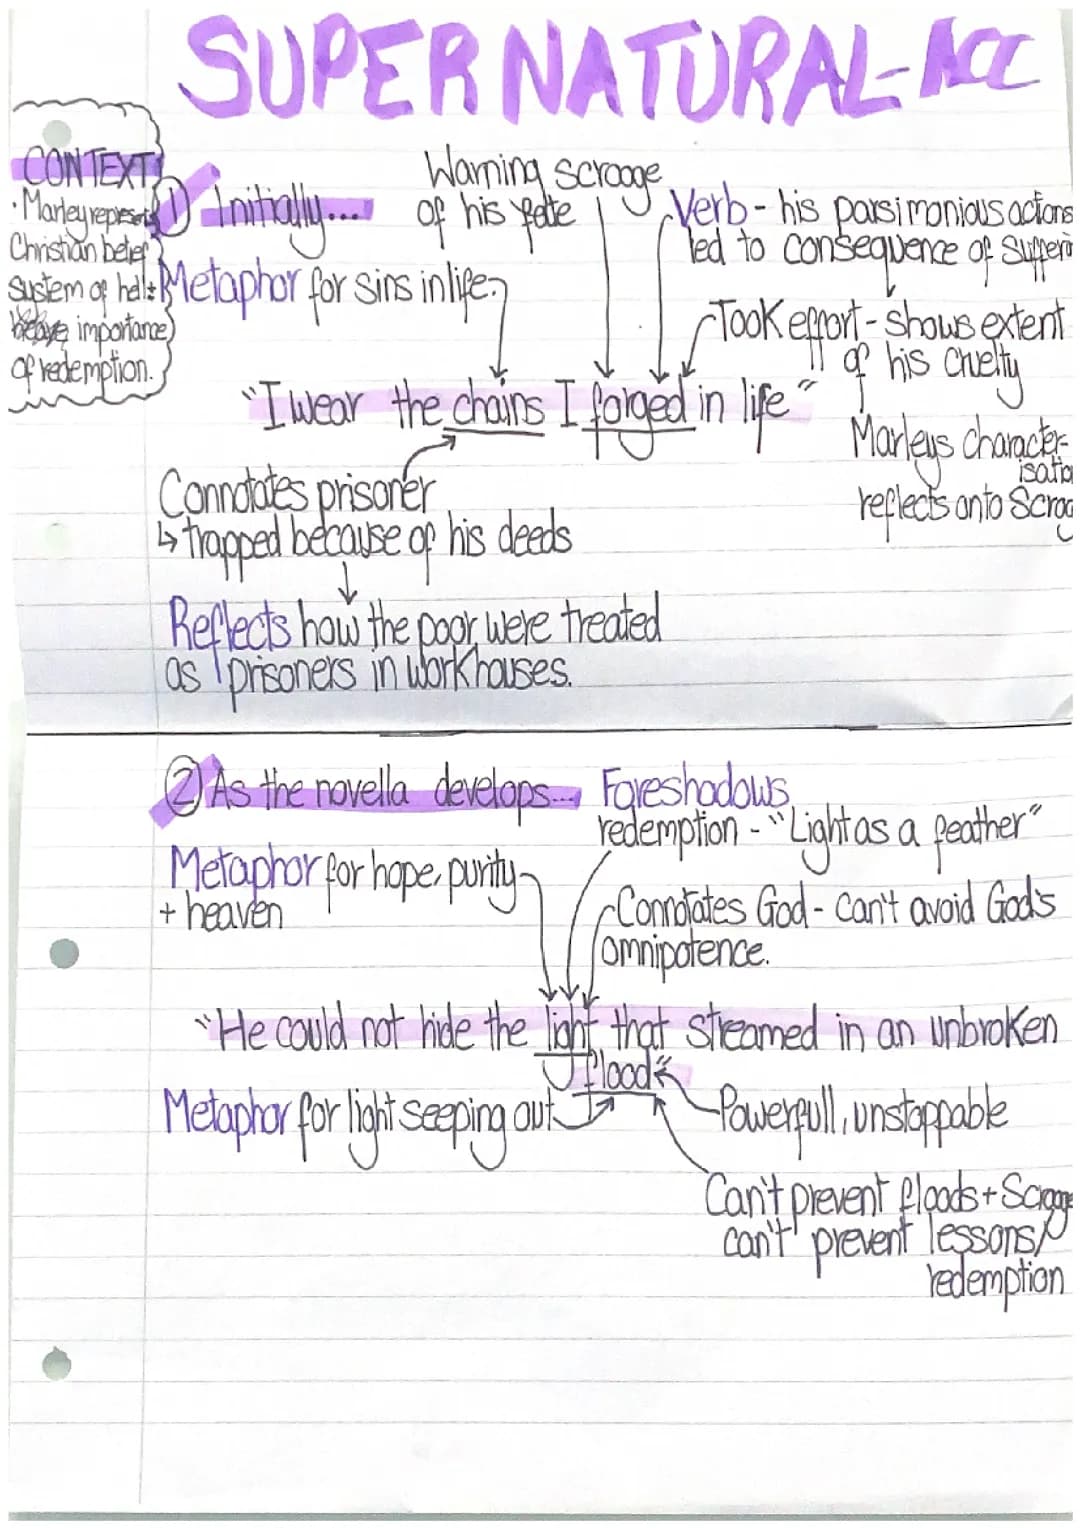 SUPERNATURAL-ACC
CONTEXT
· Marley represents
Christian belief
system of hell +
importance
of redemption.
① Initially...
Warning scrooge
of his fate
Verb - his parsimonious actions
led to consequence of suffering
Metaphor for sins in life.
Took effort - shows extent
of his cruelty
"I wear the chains I forged in life"
Marleys character-
isation
reflects onto Scrooge
Connotates prisoner
↳ trapped because of his deeds
Reflects how the poor were treated
as prisoners in workhouses.
② As the novella develops...
Foreshadows
redemption - "Light as a feather"
Metaphor for hope, purity
+ heaven
Connotates God - can't avoid God's
omnipotence.
"He could not hide the light that streamed in an unbroken
flood"
Metaphor for light seeping out
Powerfull, unstoppable
Can't prevent floods + Scrooge
can't prevent lessons/
redemption